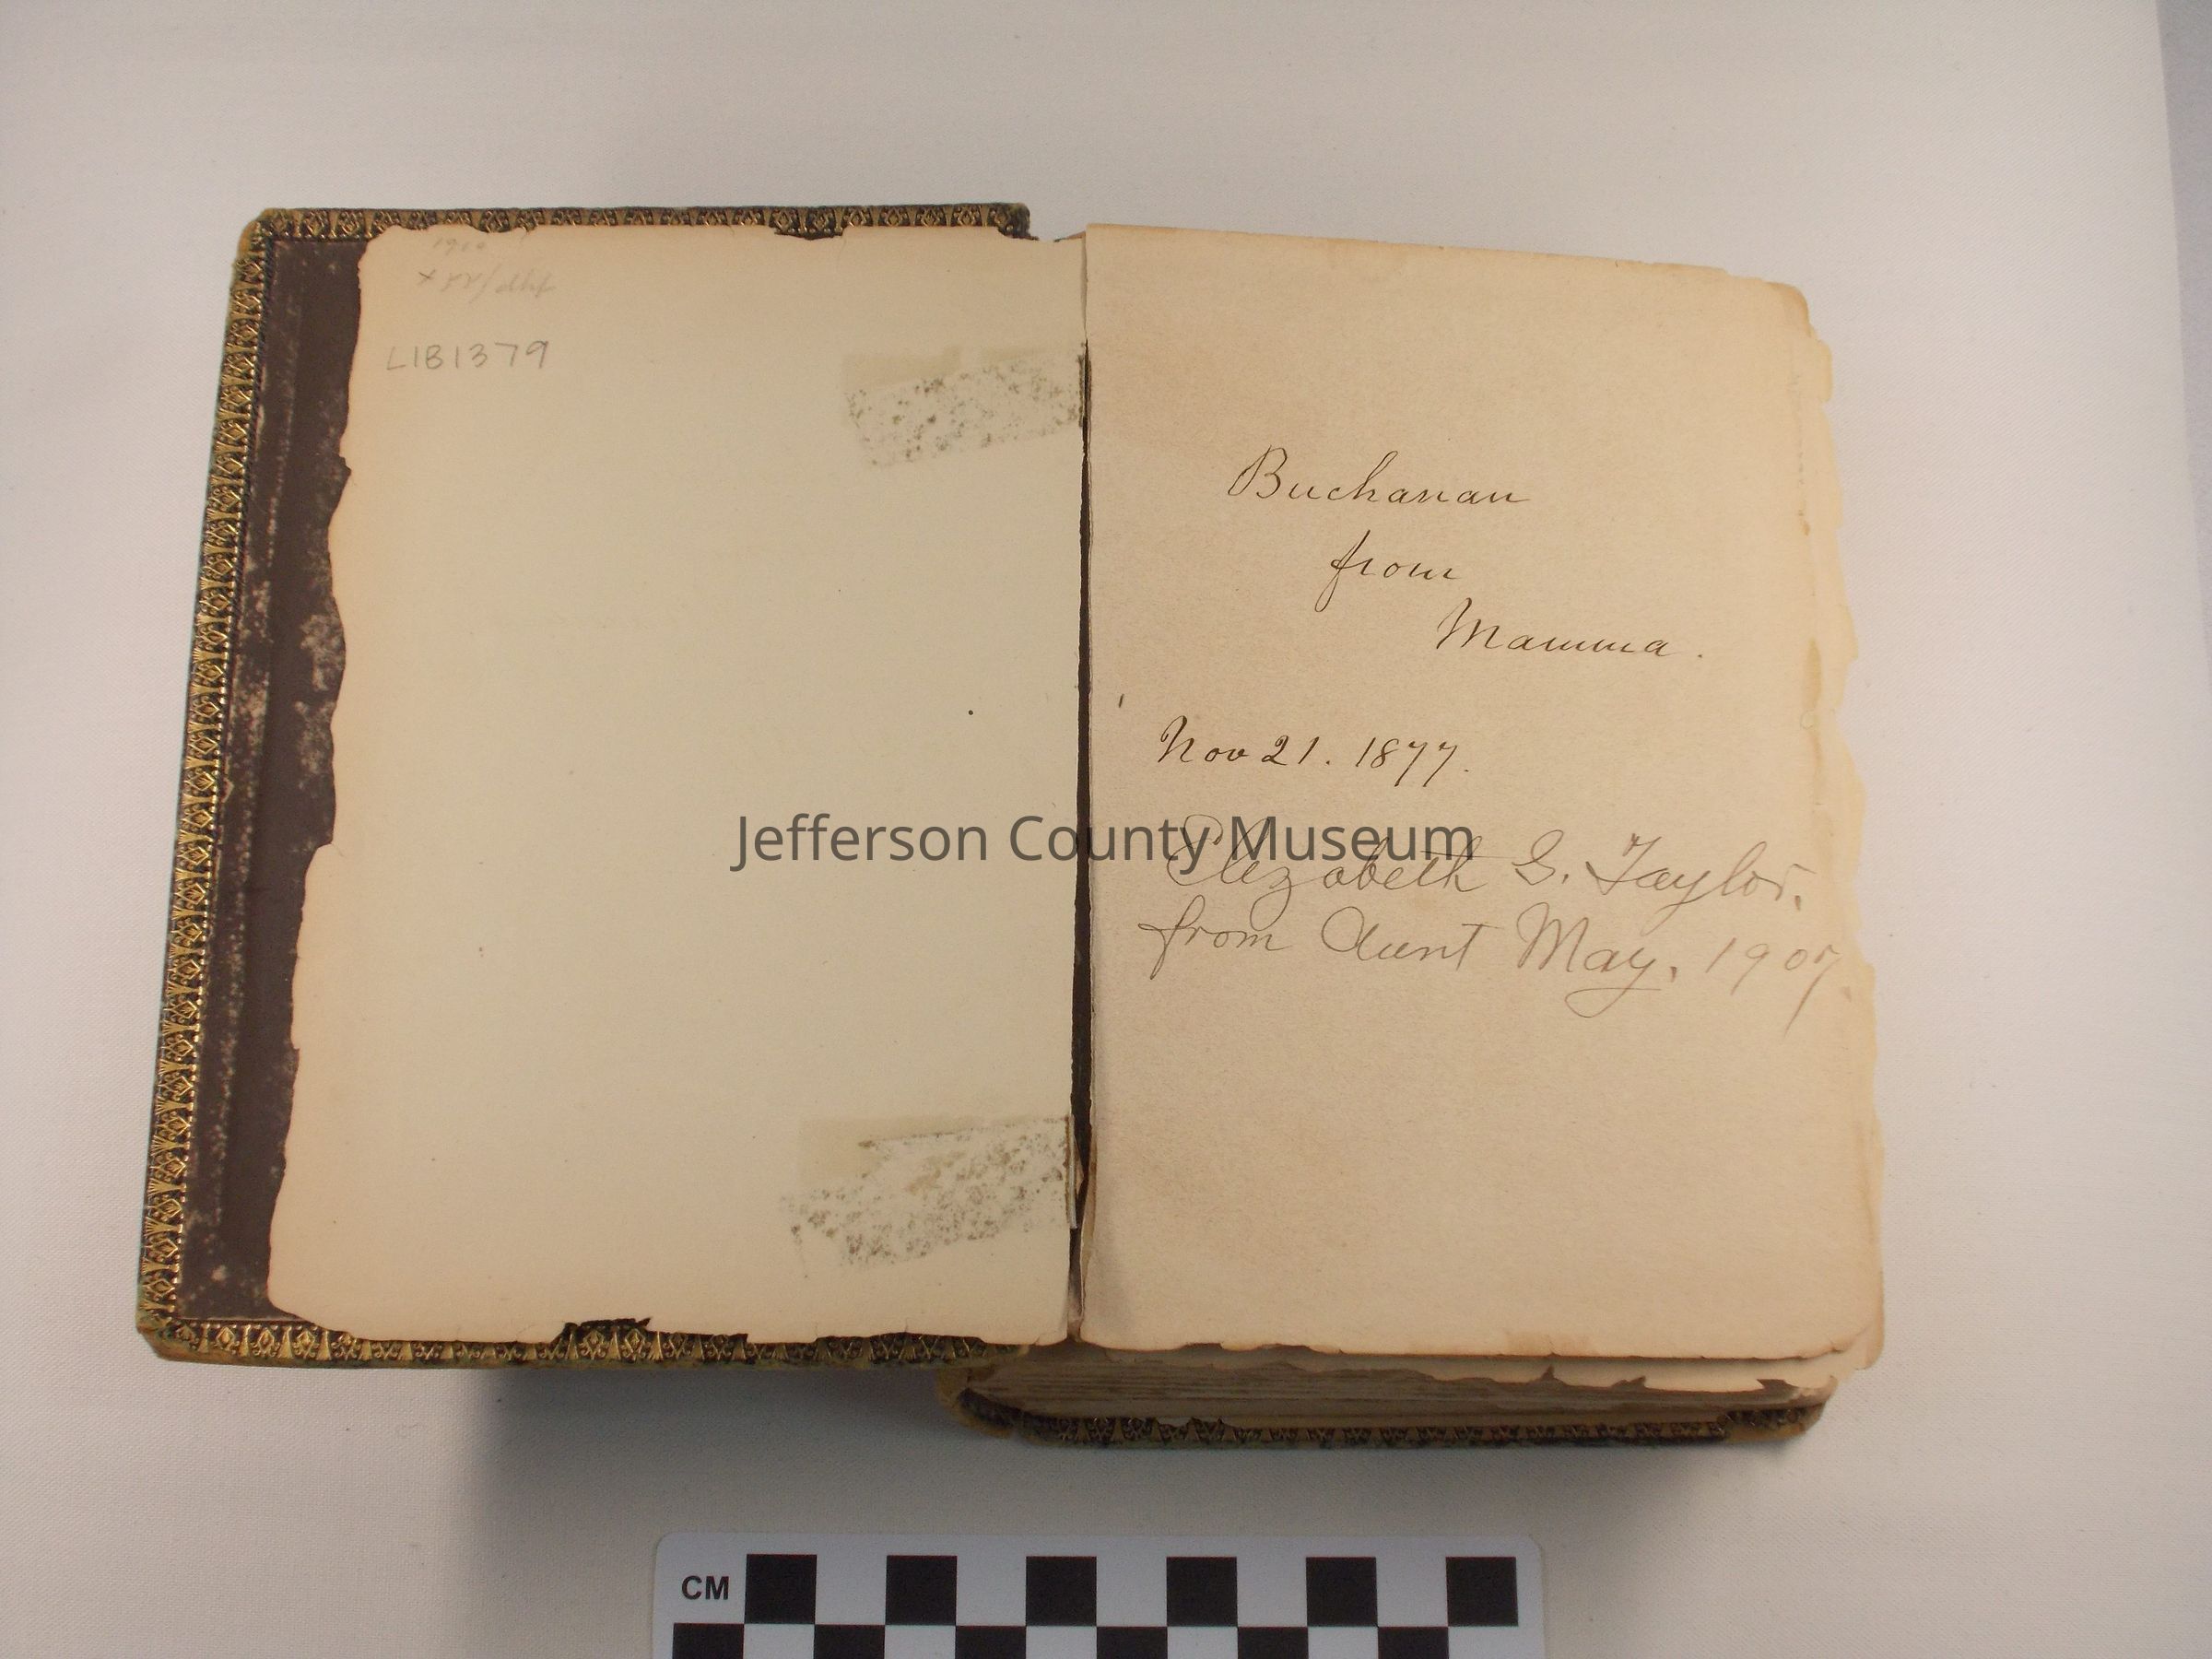 1910
LIB1379
Buchanan
from
Mamma.
Nov 21. 1877.
Elizabeth G. Taylor.
from Aunt May, 1907
Jefferson County Museum
CM